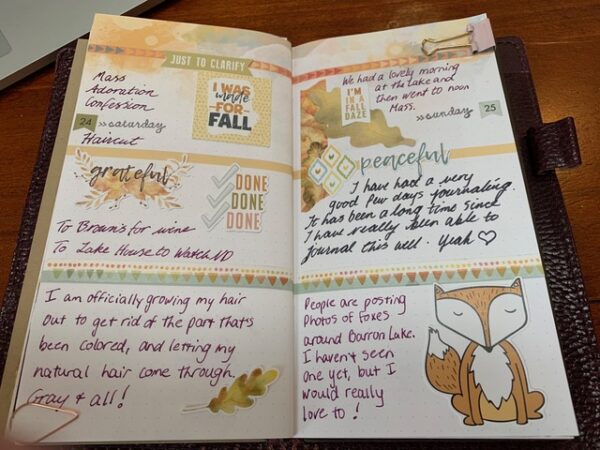 JUST TO CLARIFY
Mass
Adoration
Confession
24 »saturday
Haircut
I WAS
made
-FOR-
FALL
grateful
DONE
DONE
DONE
To Brown's for wine
To Lake House to Watch ND
I am officially growing my hair
out to get rid of the part that's
been colored, and letting my
natural hair come through.
Gray & all!
We had a lovely morning
at the lake and
then went to noon
Mass.
I'M
IN A
FALL
DAZE
»sunday 25
peaceful
I have had a very
good few days journaling.
It has been a long time since
I have really been able to
journal this well. Yeah ♡
People are posting
Photos of foxes
around Barron Lake.
I haven't seen
one yet, but I
would really
love to!